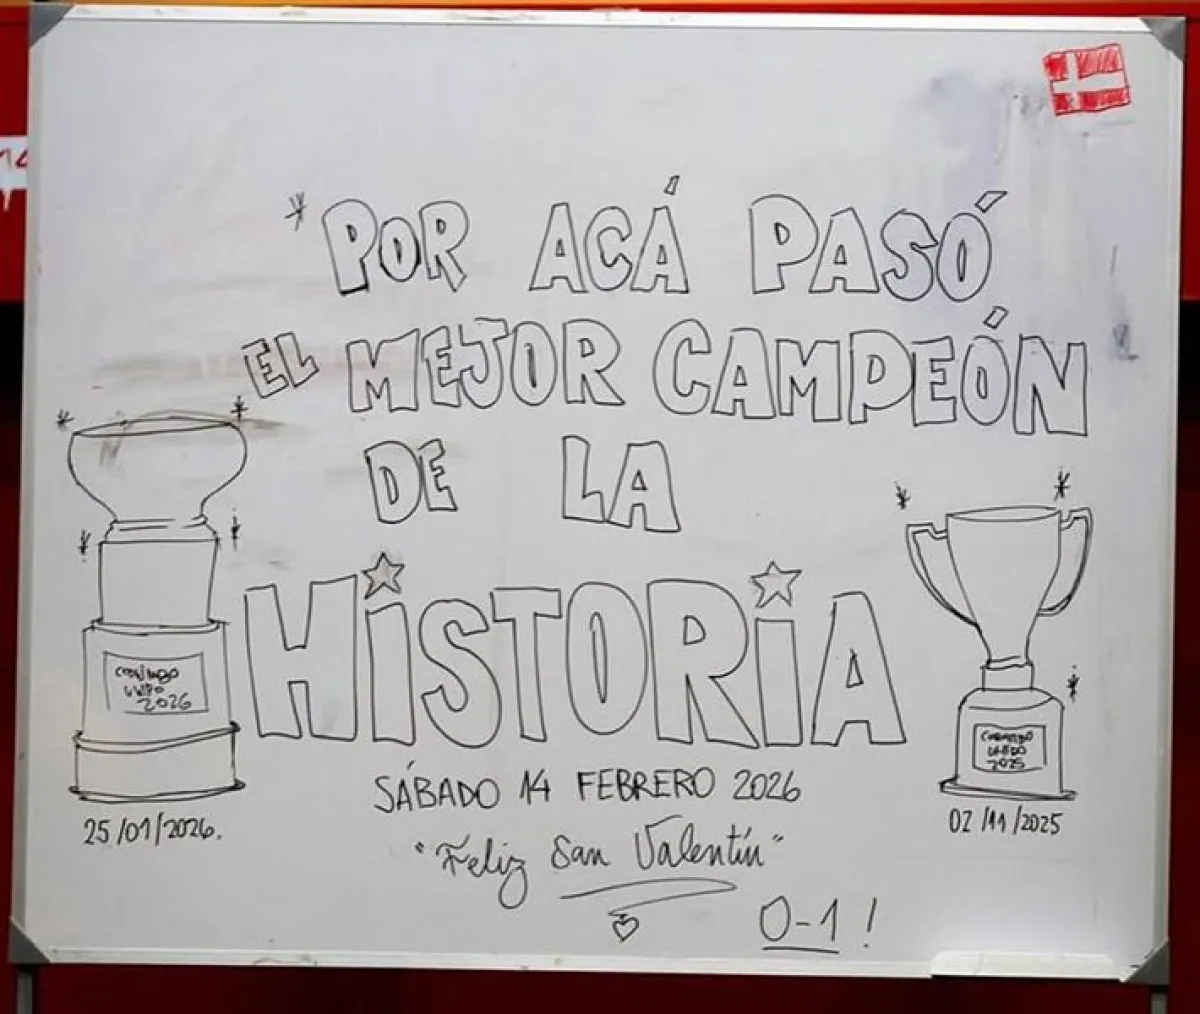 POR ACÁ PASÓ
EL MEJOR CAMPEÓN
DE LA
HISTORIA
SÁBADO 14 FEBRERO 2026
"Feliz San Valentín"
0-1!
COQUIMBO
UNIDO
2026
25/01/2026.
COQUIMBO
UNIDO
2025
02/11/2025
14